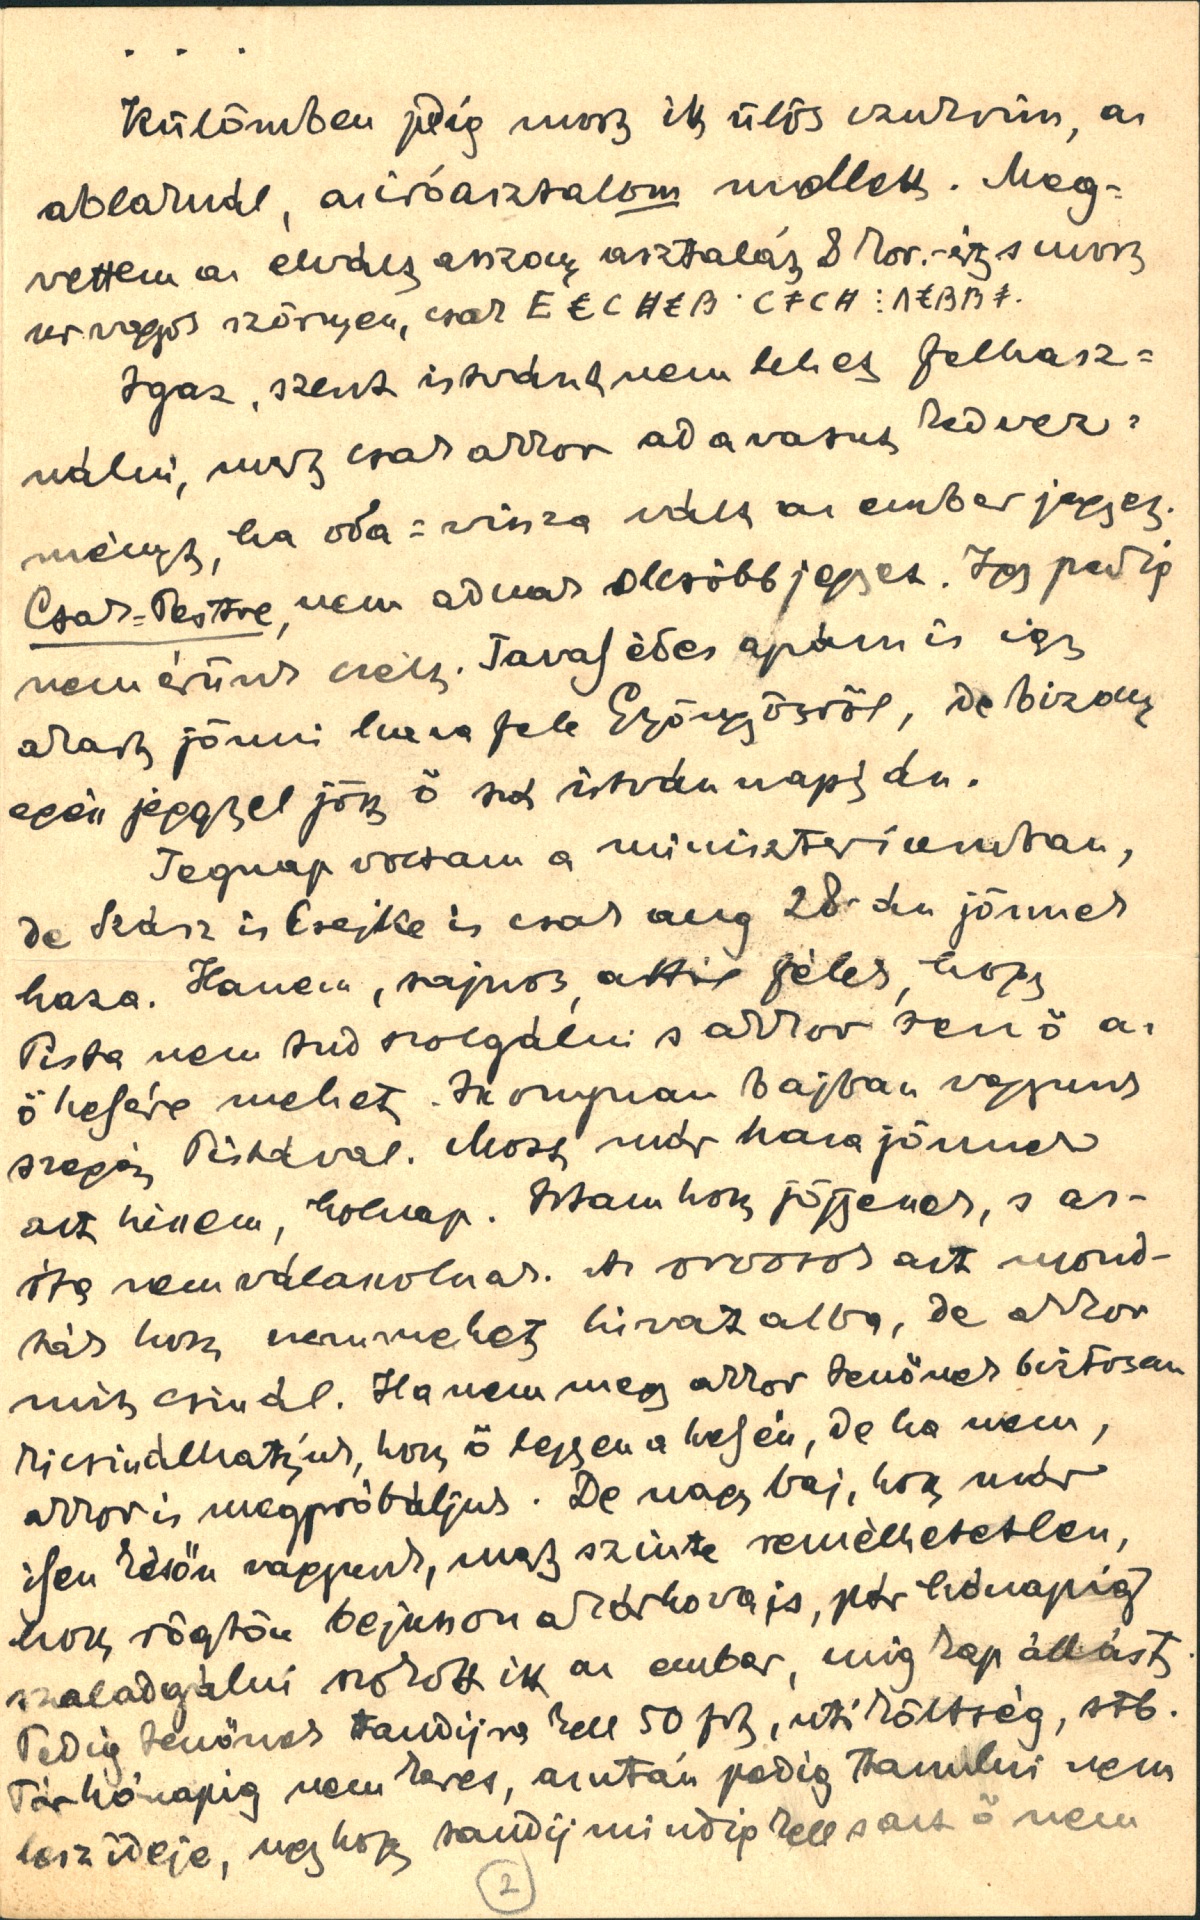 . . .
Különben pedig most itt ülök szurkosan, az
ablaknál, az iróasztalom mellett. Meg=
vettem az elvált asszony asztalát 8 kor.-ért s most
ur vagyok szörnyen, csak
Igaz, szent istvánt nem lehet felhasz=
nálni, mert csak akkor ad a vasut kedvez=
ményt, ha oda=vissza vált az ember jegyet.
Csak=Pestre, nem adnak olcsóbb jegyet. Igy pedig
nem érünk célt. Tavaly édes apám is igy
akart jönni haza fele Gyöngyösről, de bizony
egész jeggyel jött ő szt istván napján.
Tegnap voltam a miniszteriumban,
de Szász is Csejtke is csak aug 28-án jönnek
haza. Hanem, sajnos, attól félek, hogy
Pista nem tud szolgálni s akkor Jenő az
ő helyére mehet. Iszonyuan bajban vagyunk
szegény Pistával. Most már haza jönnek
azt hiszem, holnap. Irtam hogy jöjjenek, s az-
óta nem válaszolnak. Az orvosok azt mond-
ták hogy nem mehet hivatalba, de akkor
mit csinál. Ha nem megy akkor Jenőnek biztosan
kicsinálhatjuk, hogy ő legyen a helyén, de ha nem,
akkor is megpróbáljuk. De nagy baj, hogy már
ilyen késön vagyunk, mert szinte remélhetetlen,
hogy rögtön bejusson akárhova is, pár hónapig
szaladgálni szokott itt az ember, mig kap állást.
Pedig Jenőnek tandijra kell 50 frt, uti költség, stb.
Pár hónapig nem keres, azután pedig tanulni nem
lesz ideje, ugy hogy tandij mindig kell s azt ő nem
2